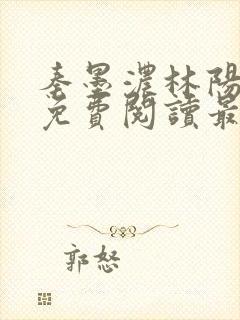 秦墨濃林陽
免費閱讀最
郭怒